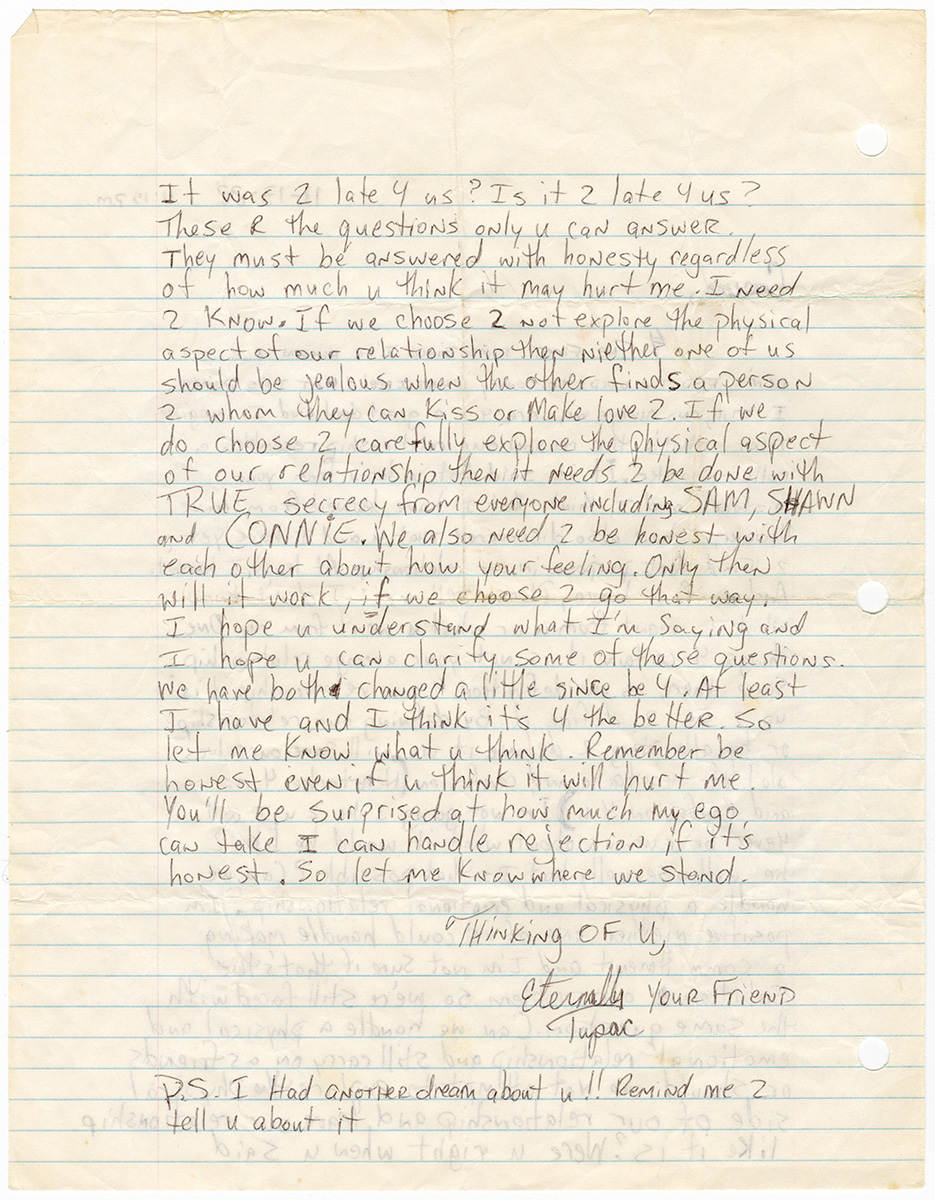 It was 2 late 4 us? Is it 2 late 4 us?
These R the questions only u can answer.
They must be answered with honesty regardless
of how much u think it may hurt me. I need
2 know. If we choose 2 not explore the physical
aspect of our relationship then niether one of us
should be jealous when the other finds a person
2 whom they can kiss or make love 2. If we
do choose 2 carefully explore the physical aspect
of our relationship then it needs 2 be done with
TRUE secrecy from everyone including SAM, SHAWN
and CONNiE. We also need 2 be honest with
each other about how your feeling. Only then
will it work, if we choose 2 go that way.
I hope u understand what I'm saying and
I hope u can clarify some of these questions.
We have both changed a little since be 4. At least
I have and I think it's 4 the better. So
let me know what u think. Remember be
honest even if u think it will hurt me.
You'll be surprised at how much my ego
can take I can handle rejection if it's
honest. So let me know where we stand.
THinking OF U,
Eternally Your Friend
Tupac
P.S. I Had another dream about u!! Remind me 2
tell u about it